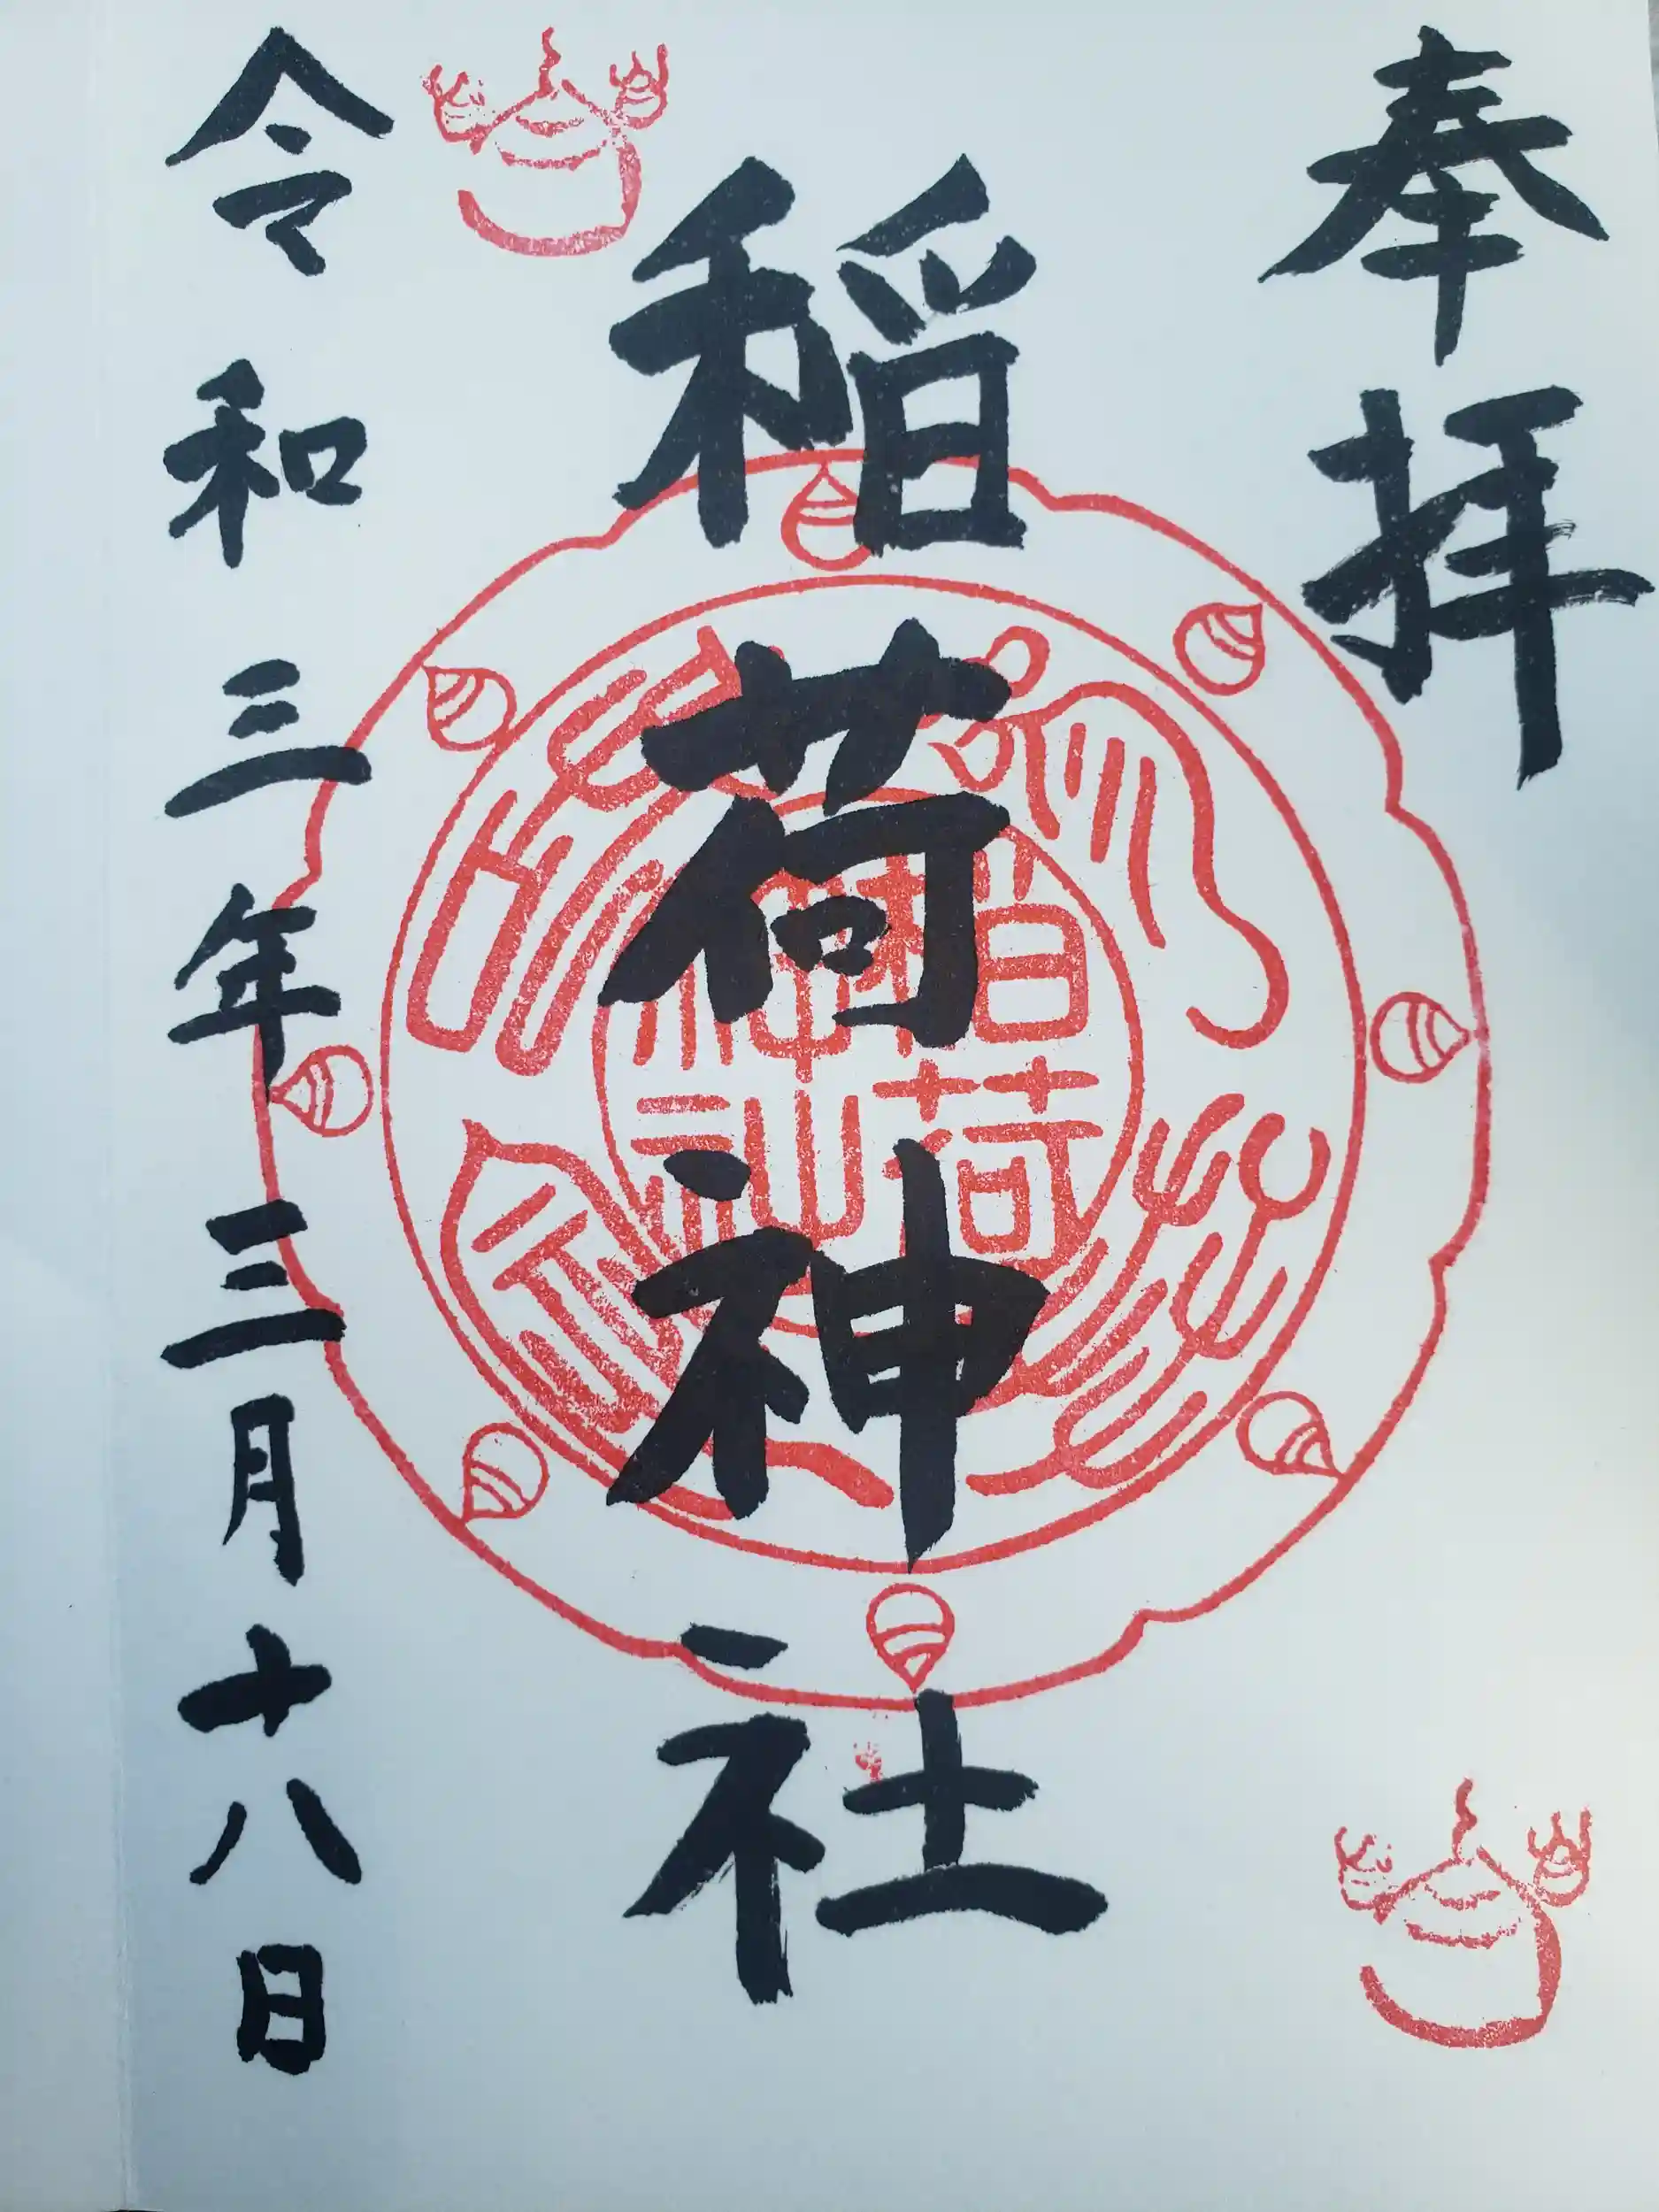 奉拝
稲荷神社
令和三年三月十八日
稲荷神社